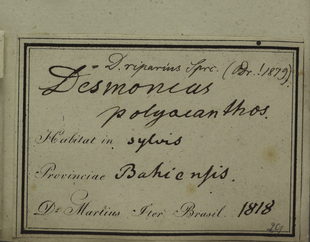 D. riparius Spre. (Dr.! 1879)
Desmoncus
polyacanthos.
Habitat in sylvis
Provinciae Bahiensis.
Dr Martius Iter Brasil. 1818